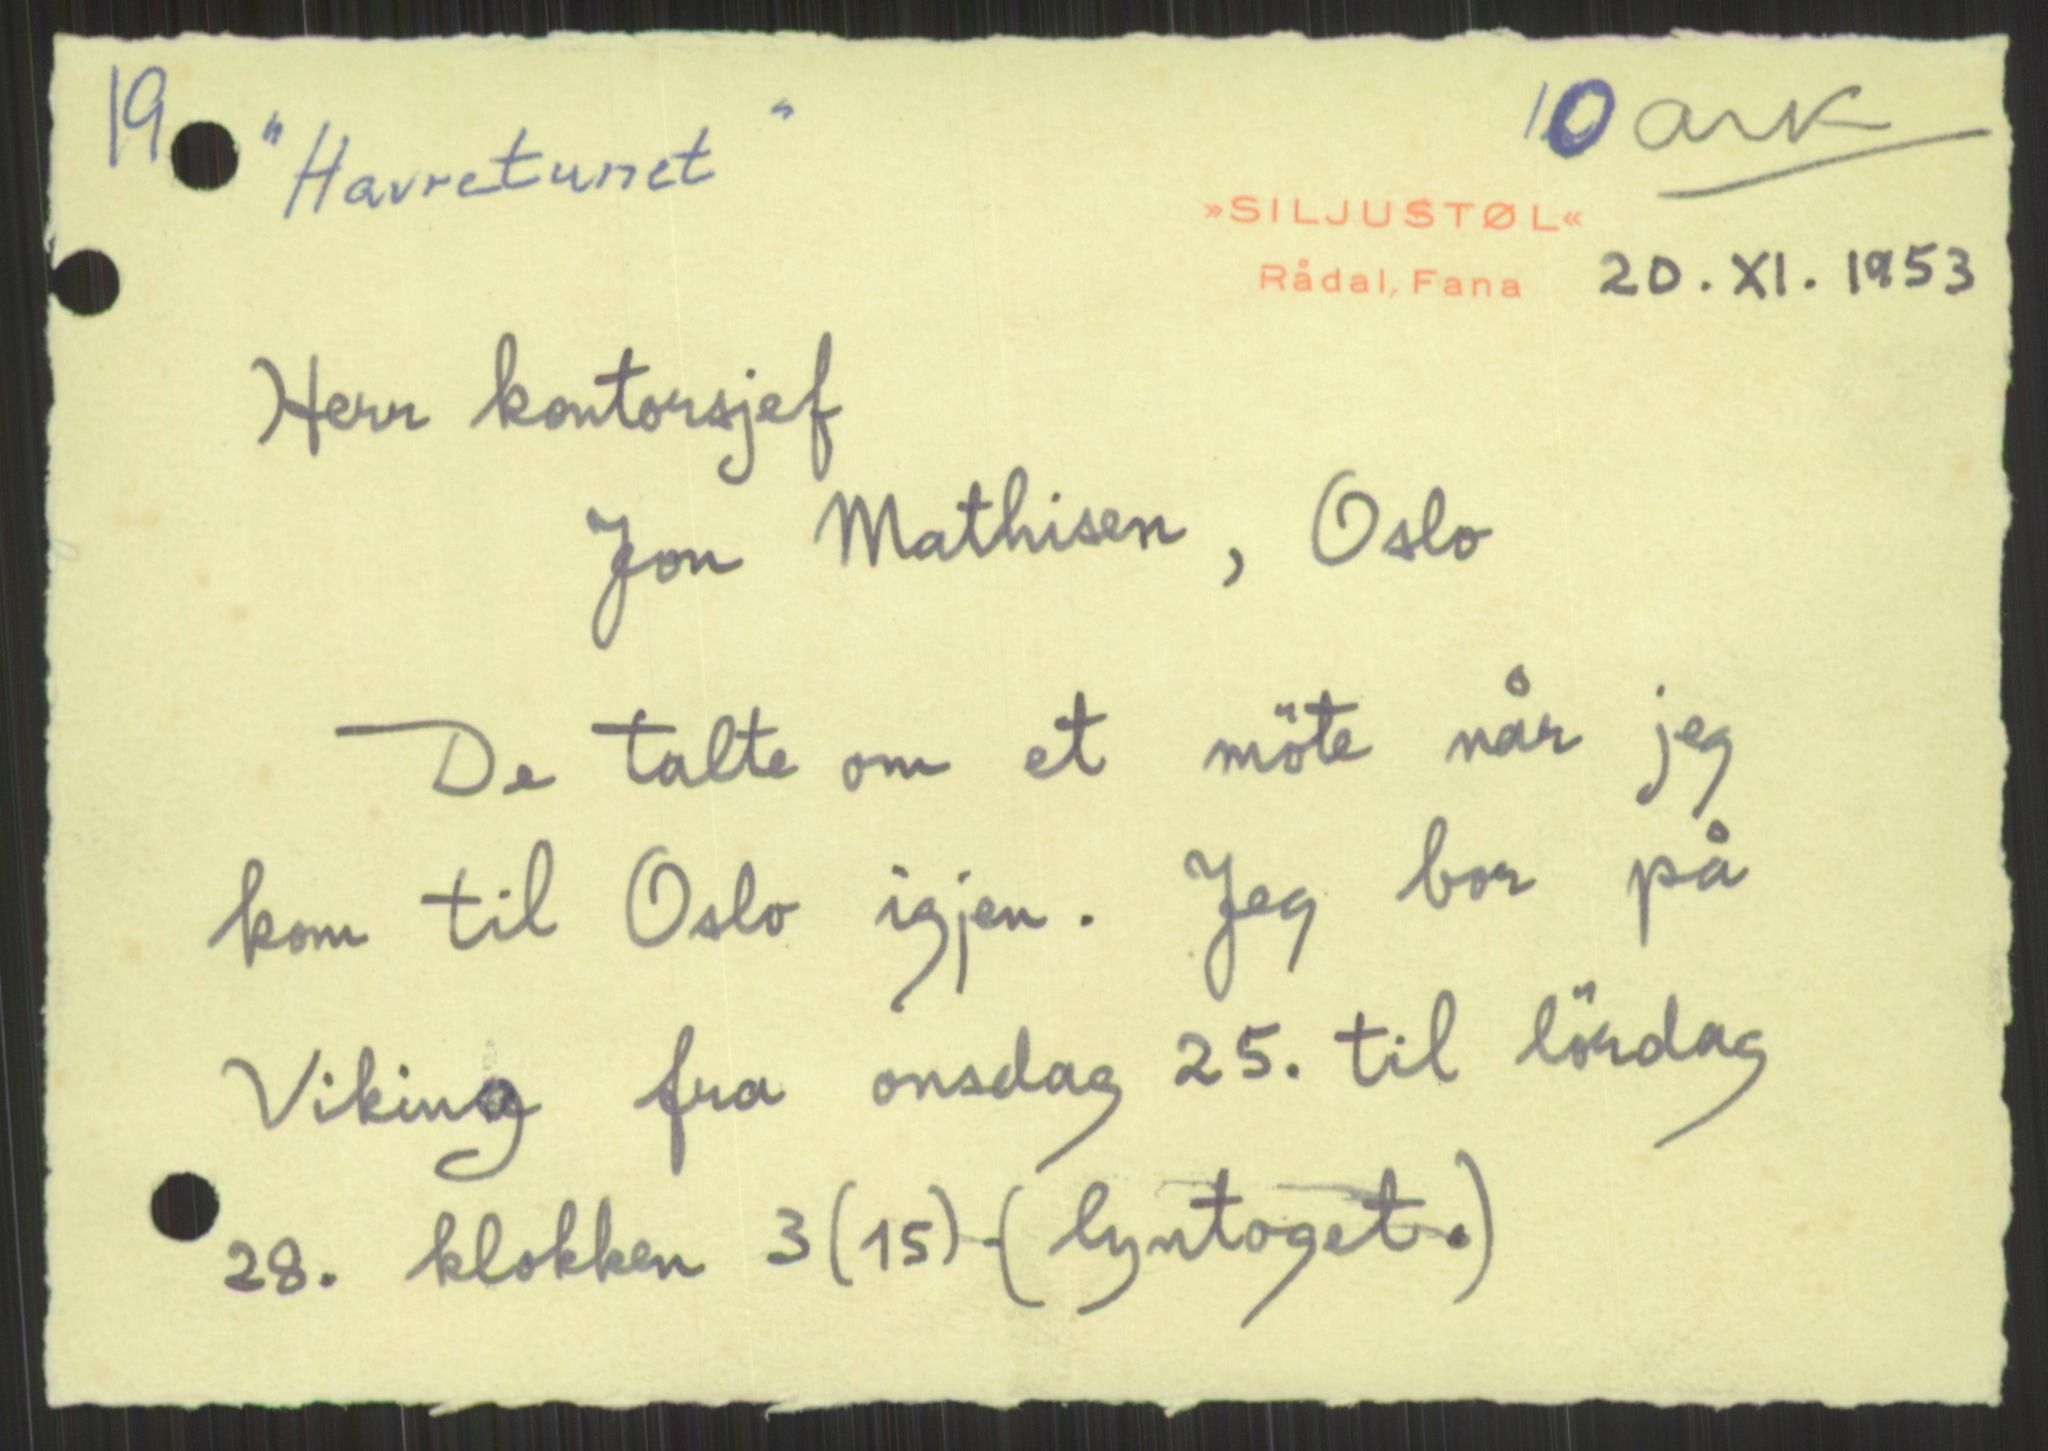 19 "Havretunet" 10 ark
»SILJUSTØL«
Rådal, Fana 20. XI. 1953
Herr kontorsjef
Jon Mathisen, Oslo
De talte om et möte når jeg
kom til Oslo igjen. Jeg bor på
Viking fra onsdag 25. til lördag
28. klokken 3 (15) - (lyntoget.)